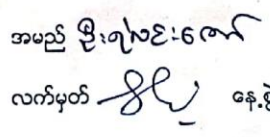 အမည် ဦးရဲလင်းဇော်
လက်မှတ် နေ့စွဲ